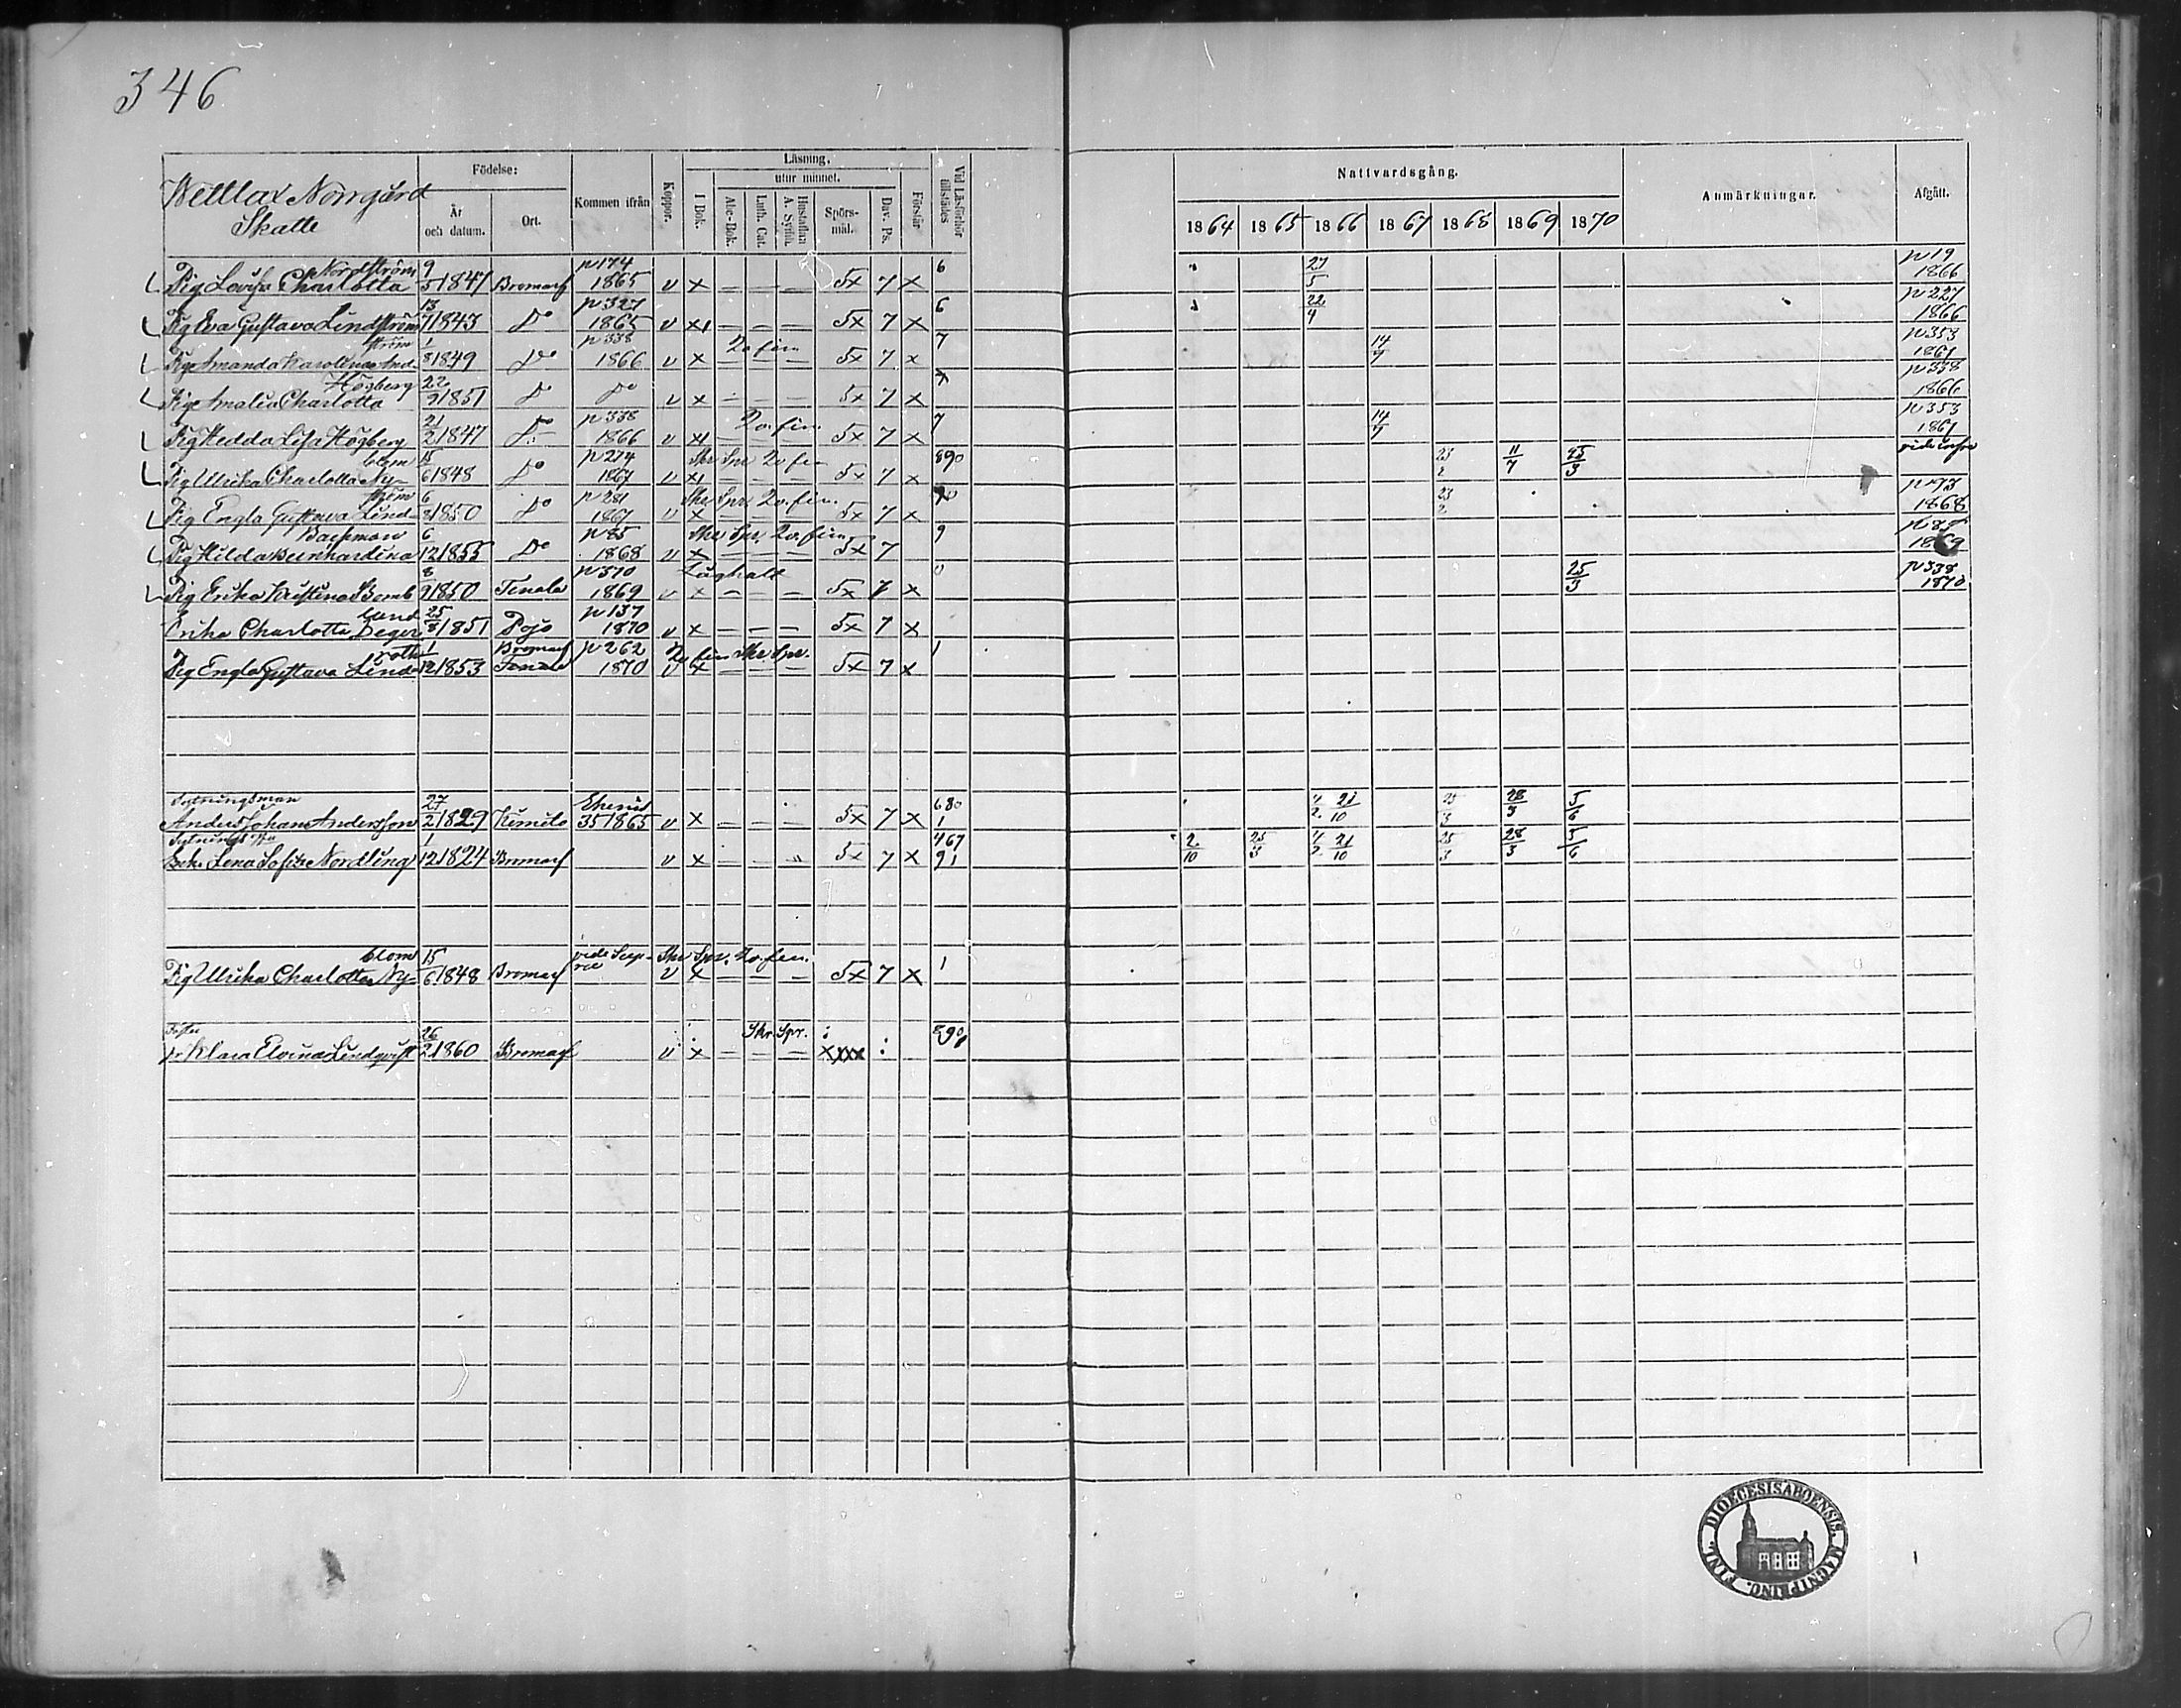 346
Wettlax Norrgård
Skatte
Födelse:
År och datum.
Ort.
Kommen ifrån
Koppor.
Läsning.
I Bok.
utur minnet.
Abc-Bok.
Luth. Cat.
Hustaflan A. Symb.
Spörsmål.
Dav. Ps.
Förstår
Vid Läsförhör tillstädes
Nattvardsgång.
1864 1865 1866 1867 1868 1869 1870
Anmärkningar.
Afgått.
Nordström 9 p 174 6 27 p 19
Pig Lovisa Charlotta 5 1847 Bromarf 1865 v x — — — 5x 7 x 5 1866
13 p 327 6 22 p 227
Pig Eva Gustava Lindström 7 1843 Do 1865 v x1 — — — 5x 7 x 4 1866
ström 1 p 338 2o. fin 7 14 p 353
Pig Amanda Karolina And- 8 1849 Do 1866 v x — — — 5x 7 x 7 1867
Högberg 22 p 338
Pig Amalia Charlotta 9 1851 Do Do v x — — — 5x 7 x 1866
21 p 338 2o. fin 7 14 p 353
Pig Hedda Lisa Högberg 2 1847 Do 1866 v x1 — — — 5x 7 x 7 1867
blom 15 p 274 Skr Spr 2o fin 890 23 11 25 vide infra
Pig Ulrika Charlotta Ny- 6 1848 Do 1867 v x1 — — — 5x 7 x 2 7 3
ström 6 p 281 Skr. Spr. 2o. fin. 23 p 73
Pig Engla Gustava Lind- 1850 Do 1867 v x — — — 5x 7 x 2 1868
6 p 85 Skr. Spr. 2o. fin 9
Pig Hilda Bernhardina 12 1855 Do 1868 v x — — — 5x 7 1869
8 p 370 Låghalt 0 25 p 338
Pig Erika Kristina Bomb 9 1850 Tenala 1869 v x — — — 5x 7 x 3 1870
25 p 137
Erika Charlotta Deger- 8 1851 Pojo 1870 v x — — — 5x 7 x
roth 1 Bromarf p 262 2o fin Skr. Spr. 1
Pig Engla Gustava Lind- 12 1853 Tenala 1870 v x — — — 5x 7 x
Sytningsman 27 Ekenäs 680 4 21 25 28 5
Anders Johan Andersson 2 1829 Kimito 35 1865 v x — — — 5x 7 x 1 2 10 3 3 6
1 467 2 25 4 21 25 28 5
Lena Sofia Nordling 12 1824 Bromarf v x — — — 5x 7 x 91 10 3 2 10 3 3 6
blom 15 vide Supra Skr Spr. 2o. fin. 1
Pig Ulrika Charlotta Ny- 6 1848 Bromarf v x — — — 5x 7 x
Foster 26 Skr. Spr.
Klara Elvina Lindqvist 2 1860 Bromarf v x — — — xxxx
FINL. DIOECESIS ABOENSIS. MAGNI PRINC.